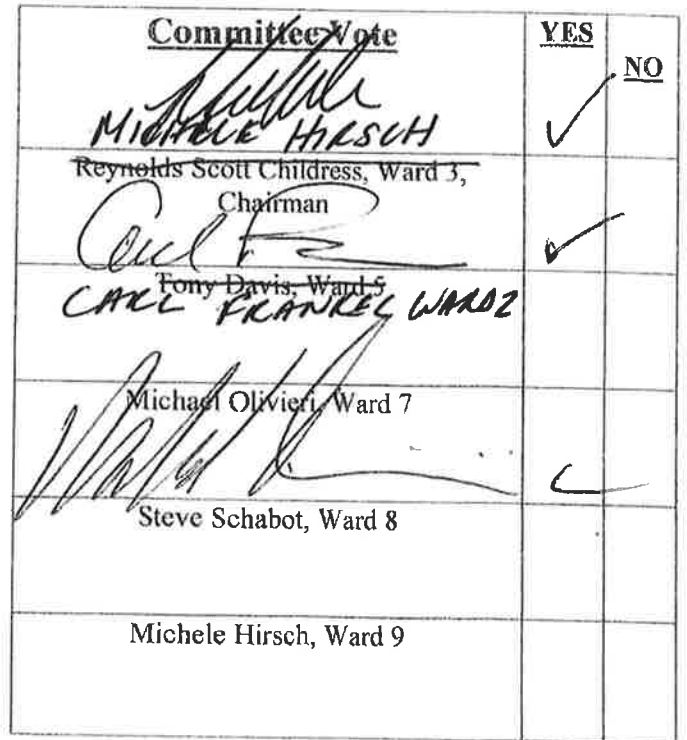 Committee Vote YES NO
MICHELE HIRSCH
Reynolds Scott Childress, Ward 3,
Chairman
Tony Davis, Ward 5
CARL FRANKEL WARD 2
Michael Olivieri, Ward 7
Steve Schabot, Ward 8
Michele Hirsch, Ward 9